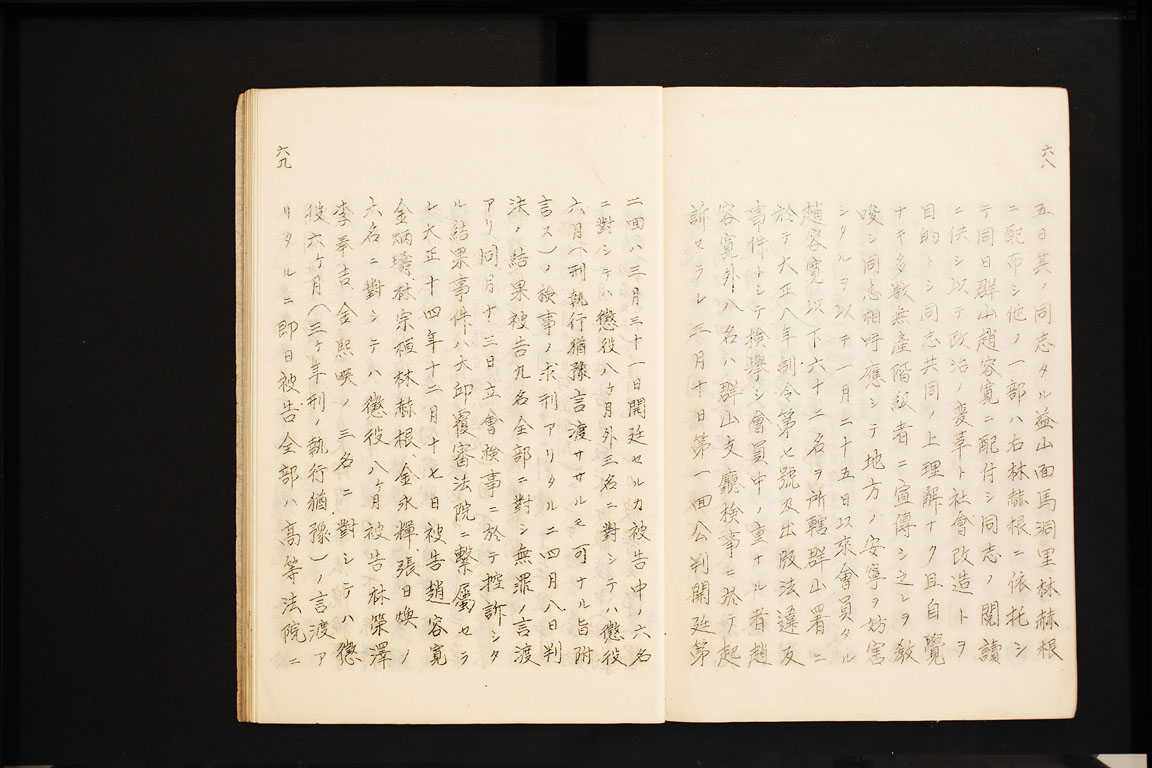 六八
五日其ノ同志タル益山面馬洞里林赫根
ニ配布シ他ノ一部ハ右林赫根ニ依托シ
テ同日群山趙容寛ニ配付シ同志ノ閲讀
ニ供シ以テ政治ノ変革ト社會改造トヲ
目的トシ同志共同ノ上理解ナク且自覺
ナキ多数無産階級者ニ宣傳シ之レヲ教
唆シ同志相呼應シテ地方ノ安寧ヲ妨害
シタルヲ以テ一月二十五日以来會員タル
趙容寛以下六十二名ヲ所轄群山署ニ
於テ大正八年制令第七號及出版法違反
事件トシテ検擧シ會員中ノ重ナル者趙
容寛外八名ハ群山支廳検事ニ於テ起
訴セラレ三月十日第一回公判開廷第
六九
二回ハ三月三十一日開廷セルカ被告中ノ六名
ニ對シテハ懲役八ヶ月外三名ニ對シテハ懲役
六月(刑執行猶豫言渡サルモ可ナル旨附
言ス)ノ検事ノ求刑アリタルニ四月八日判
決ノ結果被告九名全部ニ對シ無罪ノ言渡
アリ同月十三日立會検事ニ於テ控訴シタ
ル結果事件ハ大邱覆審法院ニ繫屬セラ
レ大正十四年十二月十七日被告趙容寛
金炳璹林宗桓林赫根、金永輝、張日煥ノ
六名ニ對シテハ懲役八ヶ月被告林榮澤
李奉吉、金熙暎ノ三名ニ對シテハ懲
役六ヶ月(三ヶ年刑ノ執行猶豫)ノ言渡ア
リタルニ即日被告全部ハ高等法院ニ